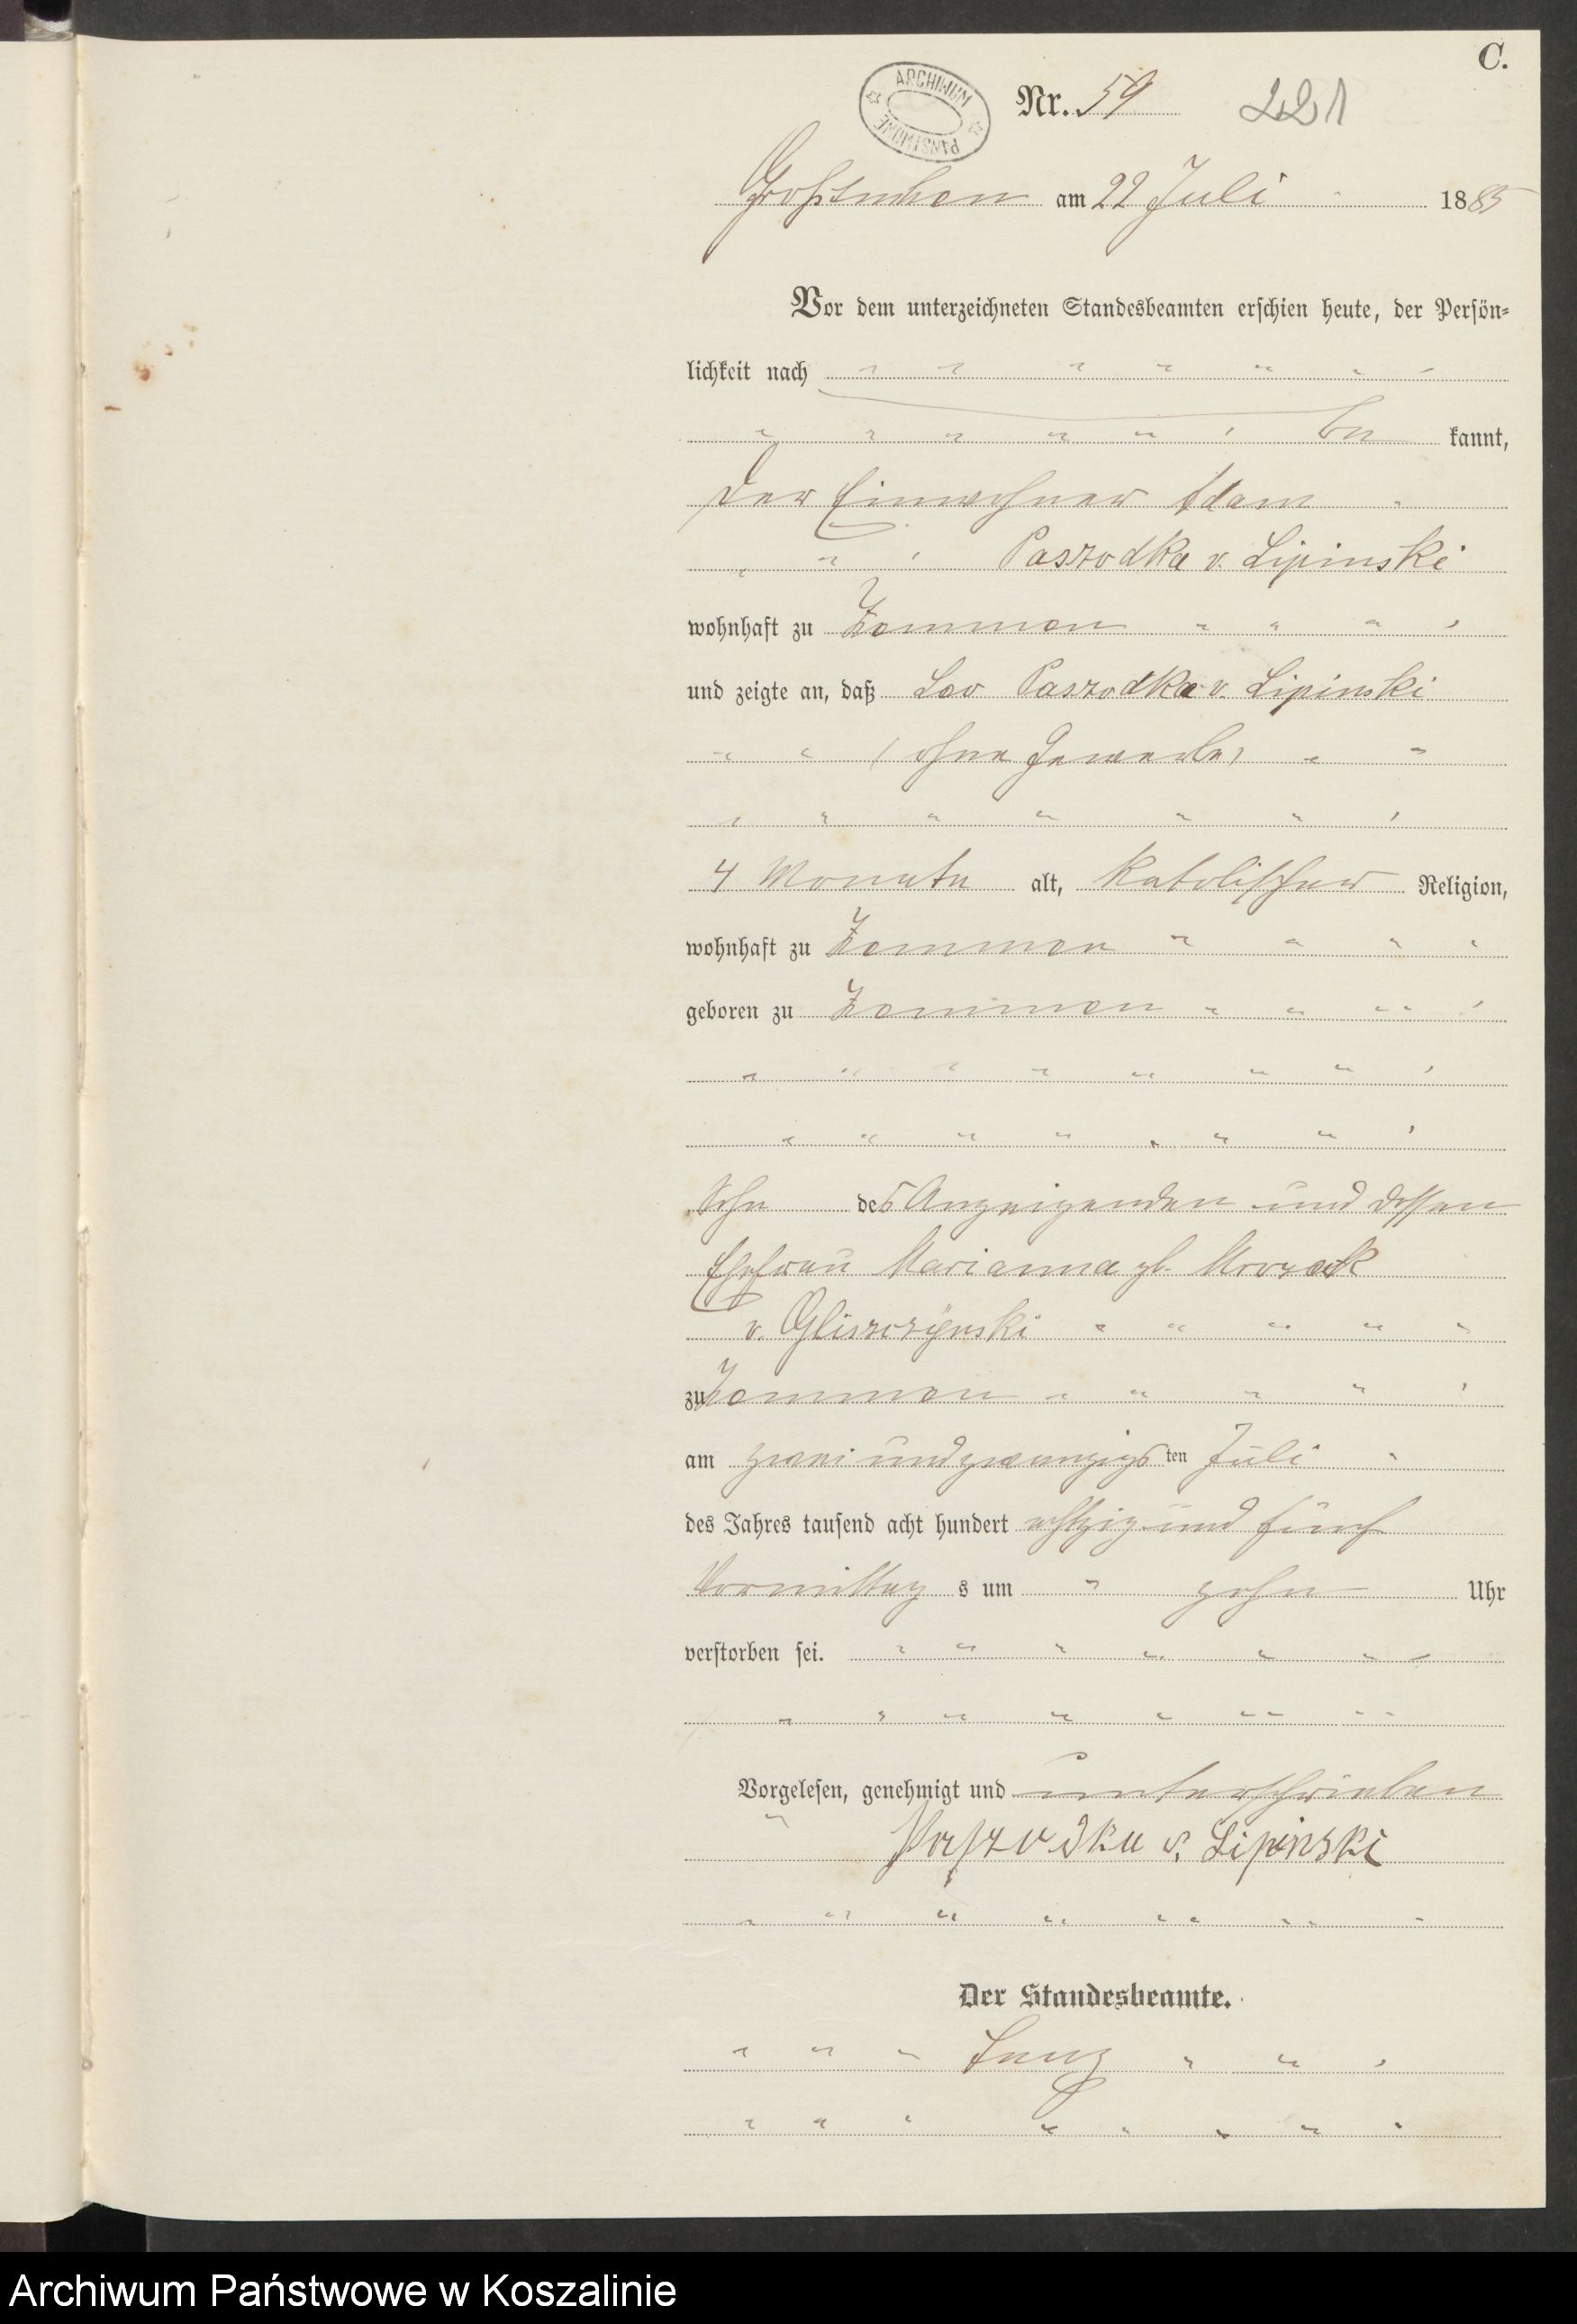 C.
ARCHIWUM PAŃSTWOWE
Nr. 59 221
Großtuchen am 22 Juli 1885
Vor dem unterzeichneten Standesbeamten erschien heute, der Persön-
lichkeit nach
be kannt,
der Einwohner Adam
Paszodka v. Lipinski
wohnhaft zu Zemmen
und zeigte an, daß Leo Paszodka v. Lipinski
(ohne Gewerbe)
4 Monate alt, katolischer Religion,
wohnhaft zu Zemmen
geboren zu Zemmen
Sohn des Anzeigenden und dessen
Ehefrau Marianna gb. Mrozek
v. Gliszczynski
zu Zemmen
am zwei und zwanzigsten Juli
des Jahres tausend acht hundert achtzig und fünf
Vormittag s um zehn Uhr
verstorben sei.
Vorgelesen, genehmigt und unterschrieben
Paszodka v. Lipinski
Der Standesbeamte.
Archiwum Państwowe w Koszalinie